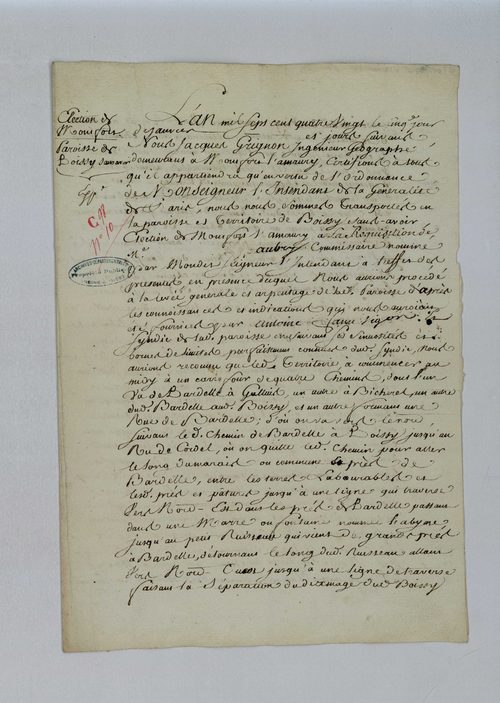 Election de
Montfort
Paroisse de
Boissy sans avoir
N.º
C 97
N.º 10
L'an mil sept cent quatre vingt le cinq.e jour
de Janvier et jours suivans
Nous Jacques Grignon Ingenieur Géographe
demeurans à Monfort l'amaury, Certifions à tous
qu'il appartiendra qu'en vertu de l'Ordonnance
de Monseigneur l'Intendant de la Generalité
de Paris, nous nous sommes transportés en
la paroisse et territoire de Boissy sans avoir
Election de Montfort l'amaury à la Requisition de
M.e aubry Commissaire nommé
par Mondit Seigneur l'Intendant à l'effet des
presentes, en presence duquel Nous aurions procedé
à la levée generale et arpentage de lad. Paroisse d'après
les connoissances et indications qui nous auroient
été fournies par antoine
Syndic de lad. paroisse
bornes de limites parfaitement connües dud. Syndic, Nous
aurions reconnu que led. Territoire à commencer au
midy à un carrefour de quatre Chemins, dont l'un
va de Bardelle à Galluis, un autre à Bicherel, un autre
dud. Bardelle aud. Boissy, et un autre formant une
Rüe de Bardelle; d'où on va vers le nord,
suivant le d. Chemin de Bardelle à Boissy jusqu'au
Ru de Cordel, où on quitte led. Chemin pour aller
le long du marais ou commune près de
Bardelle, entre les terres Labourables et
lesd. près et patures jusqu'à une ligne qui traverse
vers Nord-Est dans les près de Bardelle passant
dans une Marre ou fontaine nommé l'abyme
jusqu'au petit Ruisseau qui vient du grand près
à Bardelle, détournant le long dud. Ruisseau allant
vers Nord-Ouest jusqu'à une ligne de traverse
faisant la Séparation du dixmage dud. Boissy